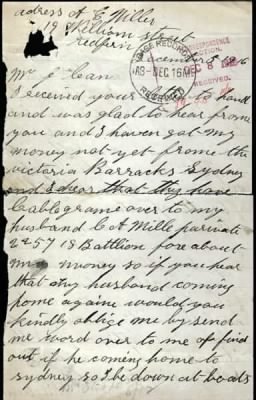 adress At E Mille
19 William street
Redfern
December 8 1916
BASE RECORDS
R3 - DEC 16 M
RECEIVED
CORRESPONDENCE
SECTION
RECEIVED.
Mr J Lean
I received your to hand
and was glad to hear from
you and I haven got my
money not yet frome the
victoria Barracks Sydney
and I dear that they have
cablegrame over to my
husband C A Mille pairvate
2257 18 Battlion fore about
money so if you hear
that my husband coming
home againe would you
kindly oblige me by send
me word over to me of find
out if he coming home to
sydney so I be down at boats